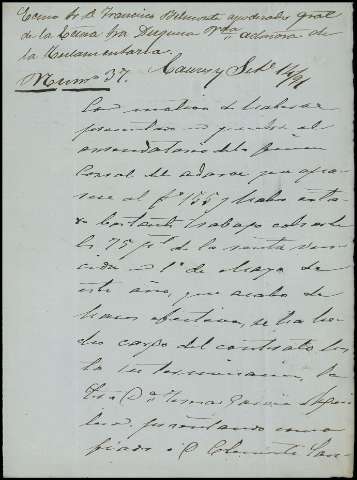 Excmo Sr. D. Francisco Belmonte apoderado gral
de la Excma Sra Duquesa Vda admora de
la Testamentaria.
Num.º 37. y Sete 14/91
Con motivo de haberse
presentado en quiebra el
arrendatario de la finca
Corral de que apa-
rece al fº 155 y haber esta-
do bastante trabajo cobrarle
las 75 pts de la renta ven-
cida en 1º de Mayo de
este año, que acabo de
hacer efectivas, se ha he-
cho cargo del contrato has-
ta su terminacion, la
Sra Dª Tomasa Garcia
presentando como
fiador a D Clemente San-